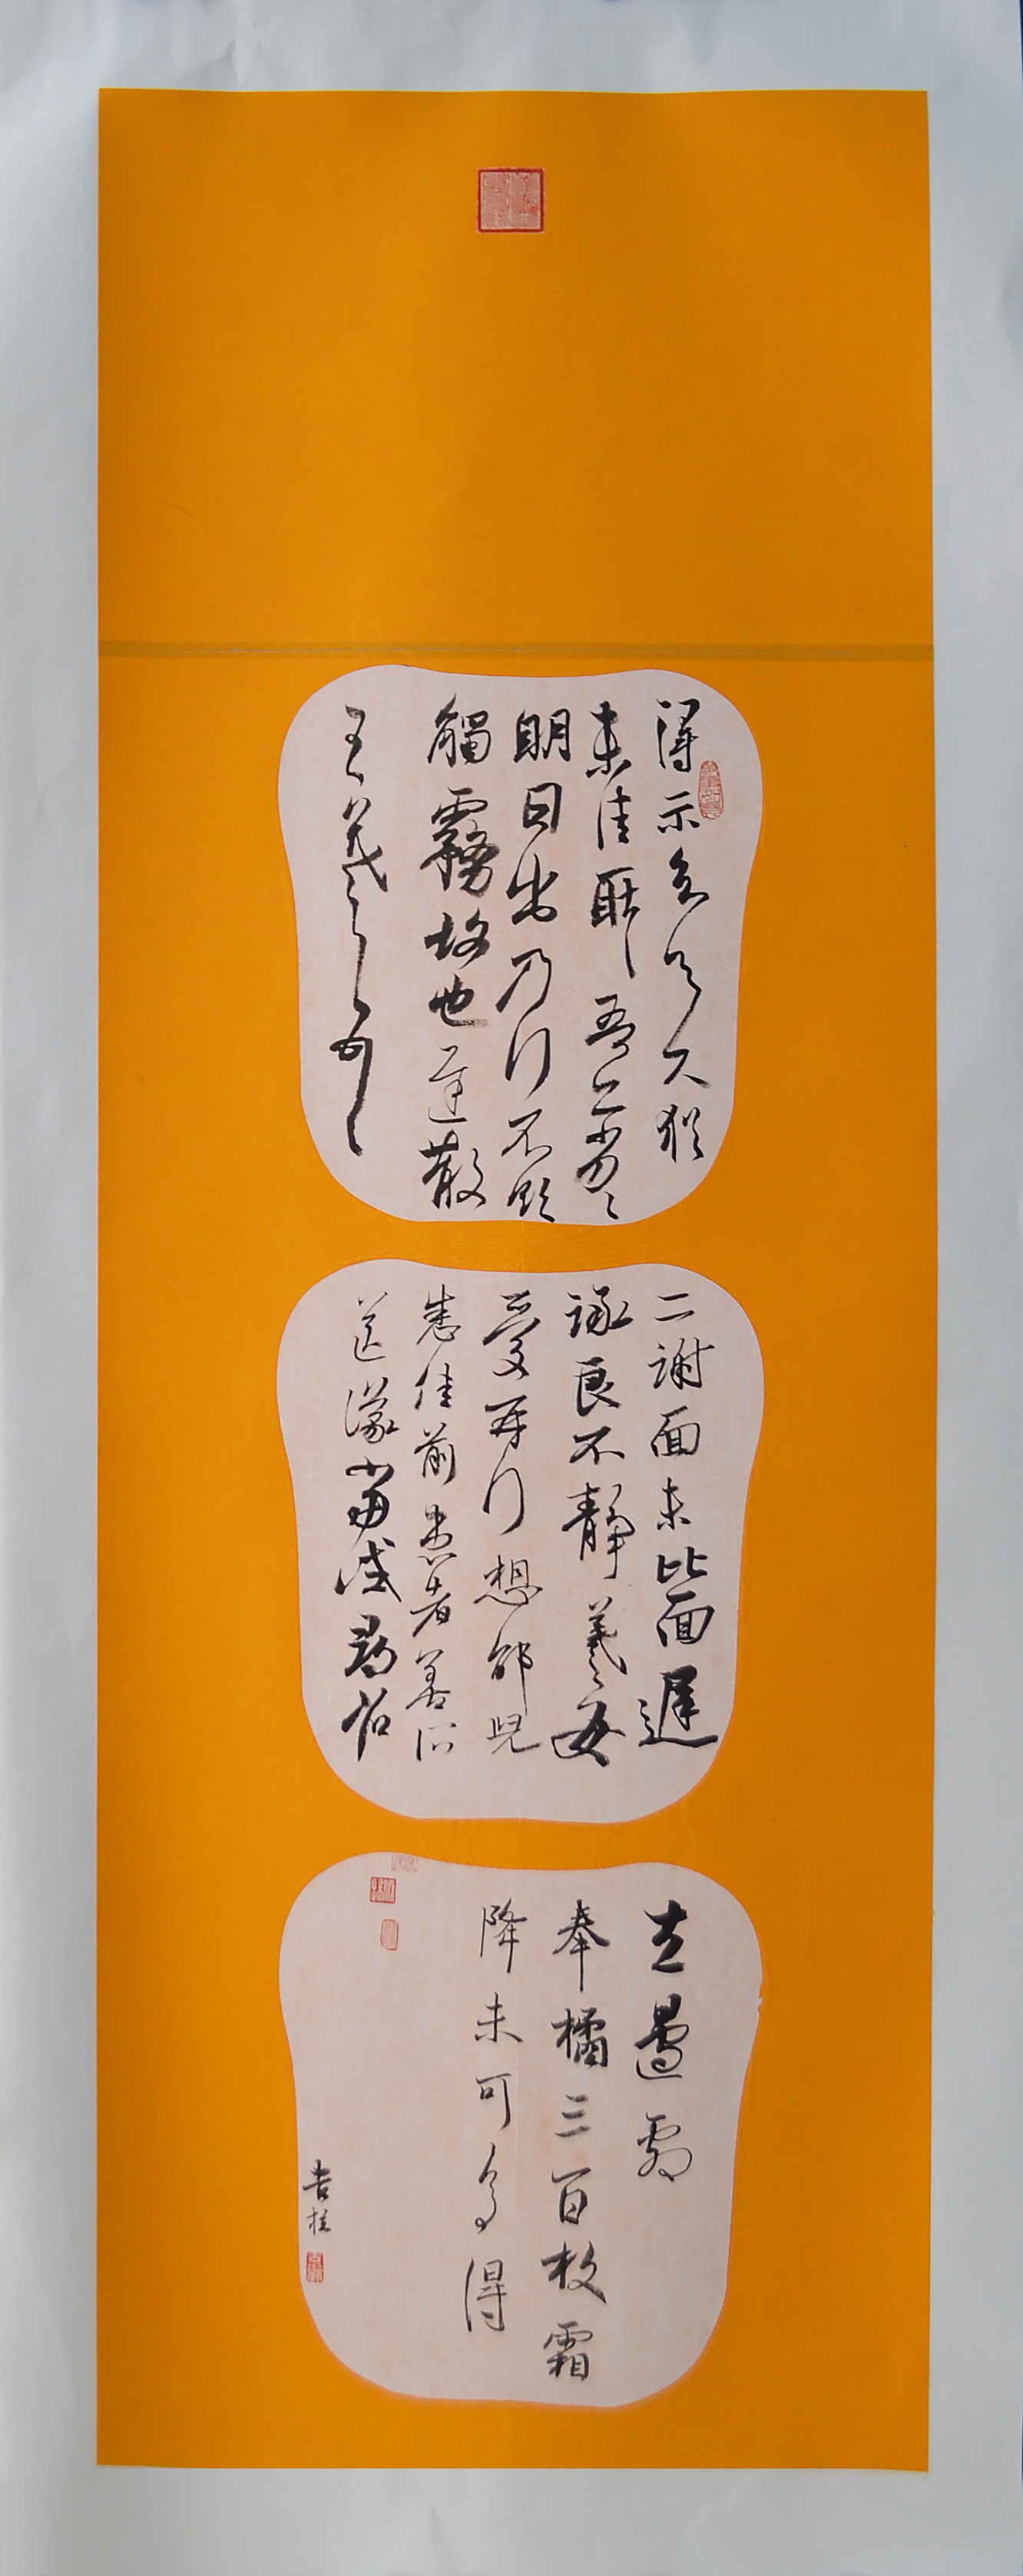 得示知足下猶
未佳耿耿吾亦劣劣
明日出乃行不欲
觸霧故也遲散
王羲之頓首
二謝面未比面遲
詠良不靜羲之女
愛再拜想邵兒
悉佳前患者善所
送議當試尋省
左邊劇
奉橘三百枚霜
降未可多得